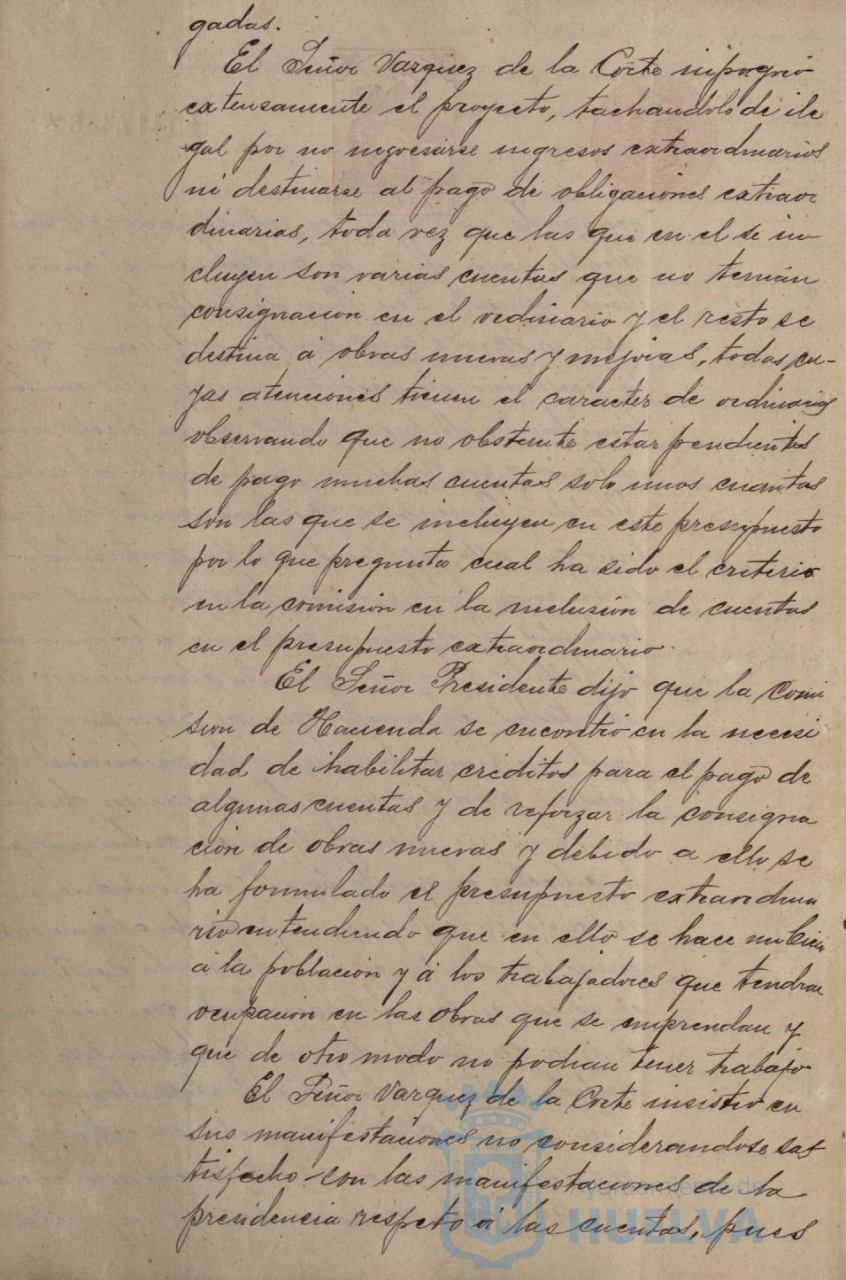 gadas.
El Señor Vazquez de la Corte impugnó
extensamente el proyecto, tachandolo de ile
gal por no ingresarse ingresos extraordinarios
ni destinarse al pago de obligaciones extraor
dinarias, toda vez que las que en el se in
cluyen son varias cuentas que no tenian
consignacion en el ordinario y el resto se
destina á obras nuevas y mejoras, todas cu-
yas atenciones tienen el caracter de ordinarias
observando que no obstante estar pendientes
de pago muchas cuentas solo unos cuantas
son las que se incluyen en este presupuesto
por lo que pregunta cual ha sido el criterio
en la comisión en la inclusión de cuentas
en el presupuesto extraordinario.
El Señor Presidente dijo que la Comi
sion de Hacienda se encontró en la necesi
dad de habilitar creditos para el pago de
algunas cuentas y de reforzar la consigna
ción de obras nuevas y debido a ello se
ha formulado el presupuesto extraordina
rio entendiendo que en ello se hace un bien
á la población y á los trabajadores que tendran
ocupacion en las obras que se emprendan y
que de otro modo no podian tener trabajo
El Señor Vazquez de la Corte insistio en
sus manifestaciones no considerandose sa
tisfecho con las manifestaciones de la
presidencia respeto á las cuentas, pues
HUELVA